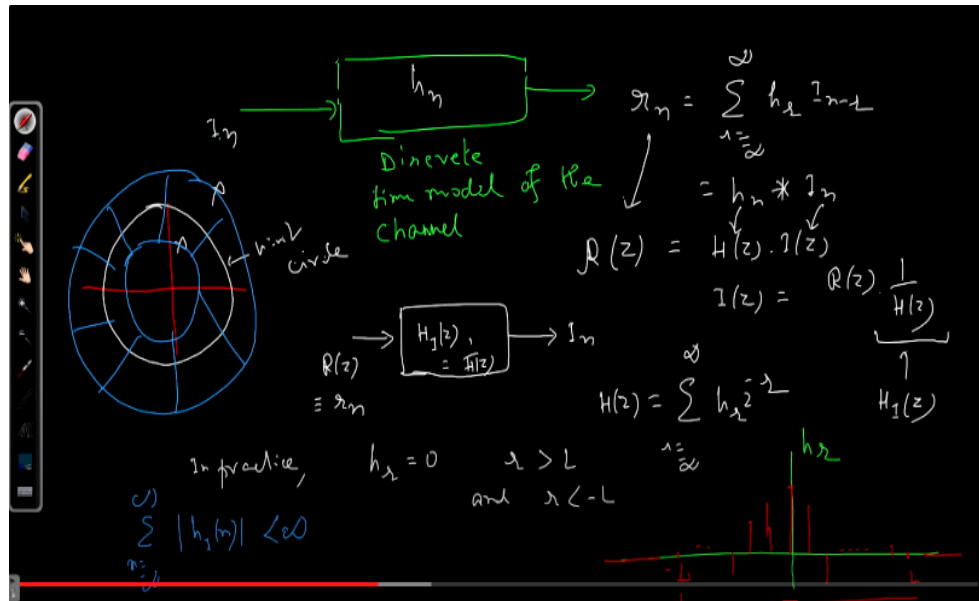 h_n
I_n
Discrete
time model of the
channel
r_n = ∑_{r=-∞}^{∞} h_r I_{n-r}
= h_n * I_n
R(z) = H(z) . I(z)
I(z) = R(z) . 1/H(z)
H_I(z)
unit
circle
R(z)
≡ r_n
H_I(z)
= 1/H(z)
I_n
H(z) = ∑_{r=-∞}^{∞} h_r z^{-r}
In practice, h_r = 0 r > L
and r < -L
∑_{n=-∞}^{∞} |h_I(n)| < ∞
h_r
-L
L